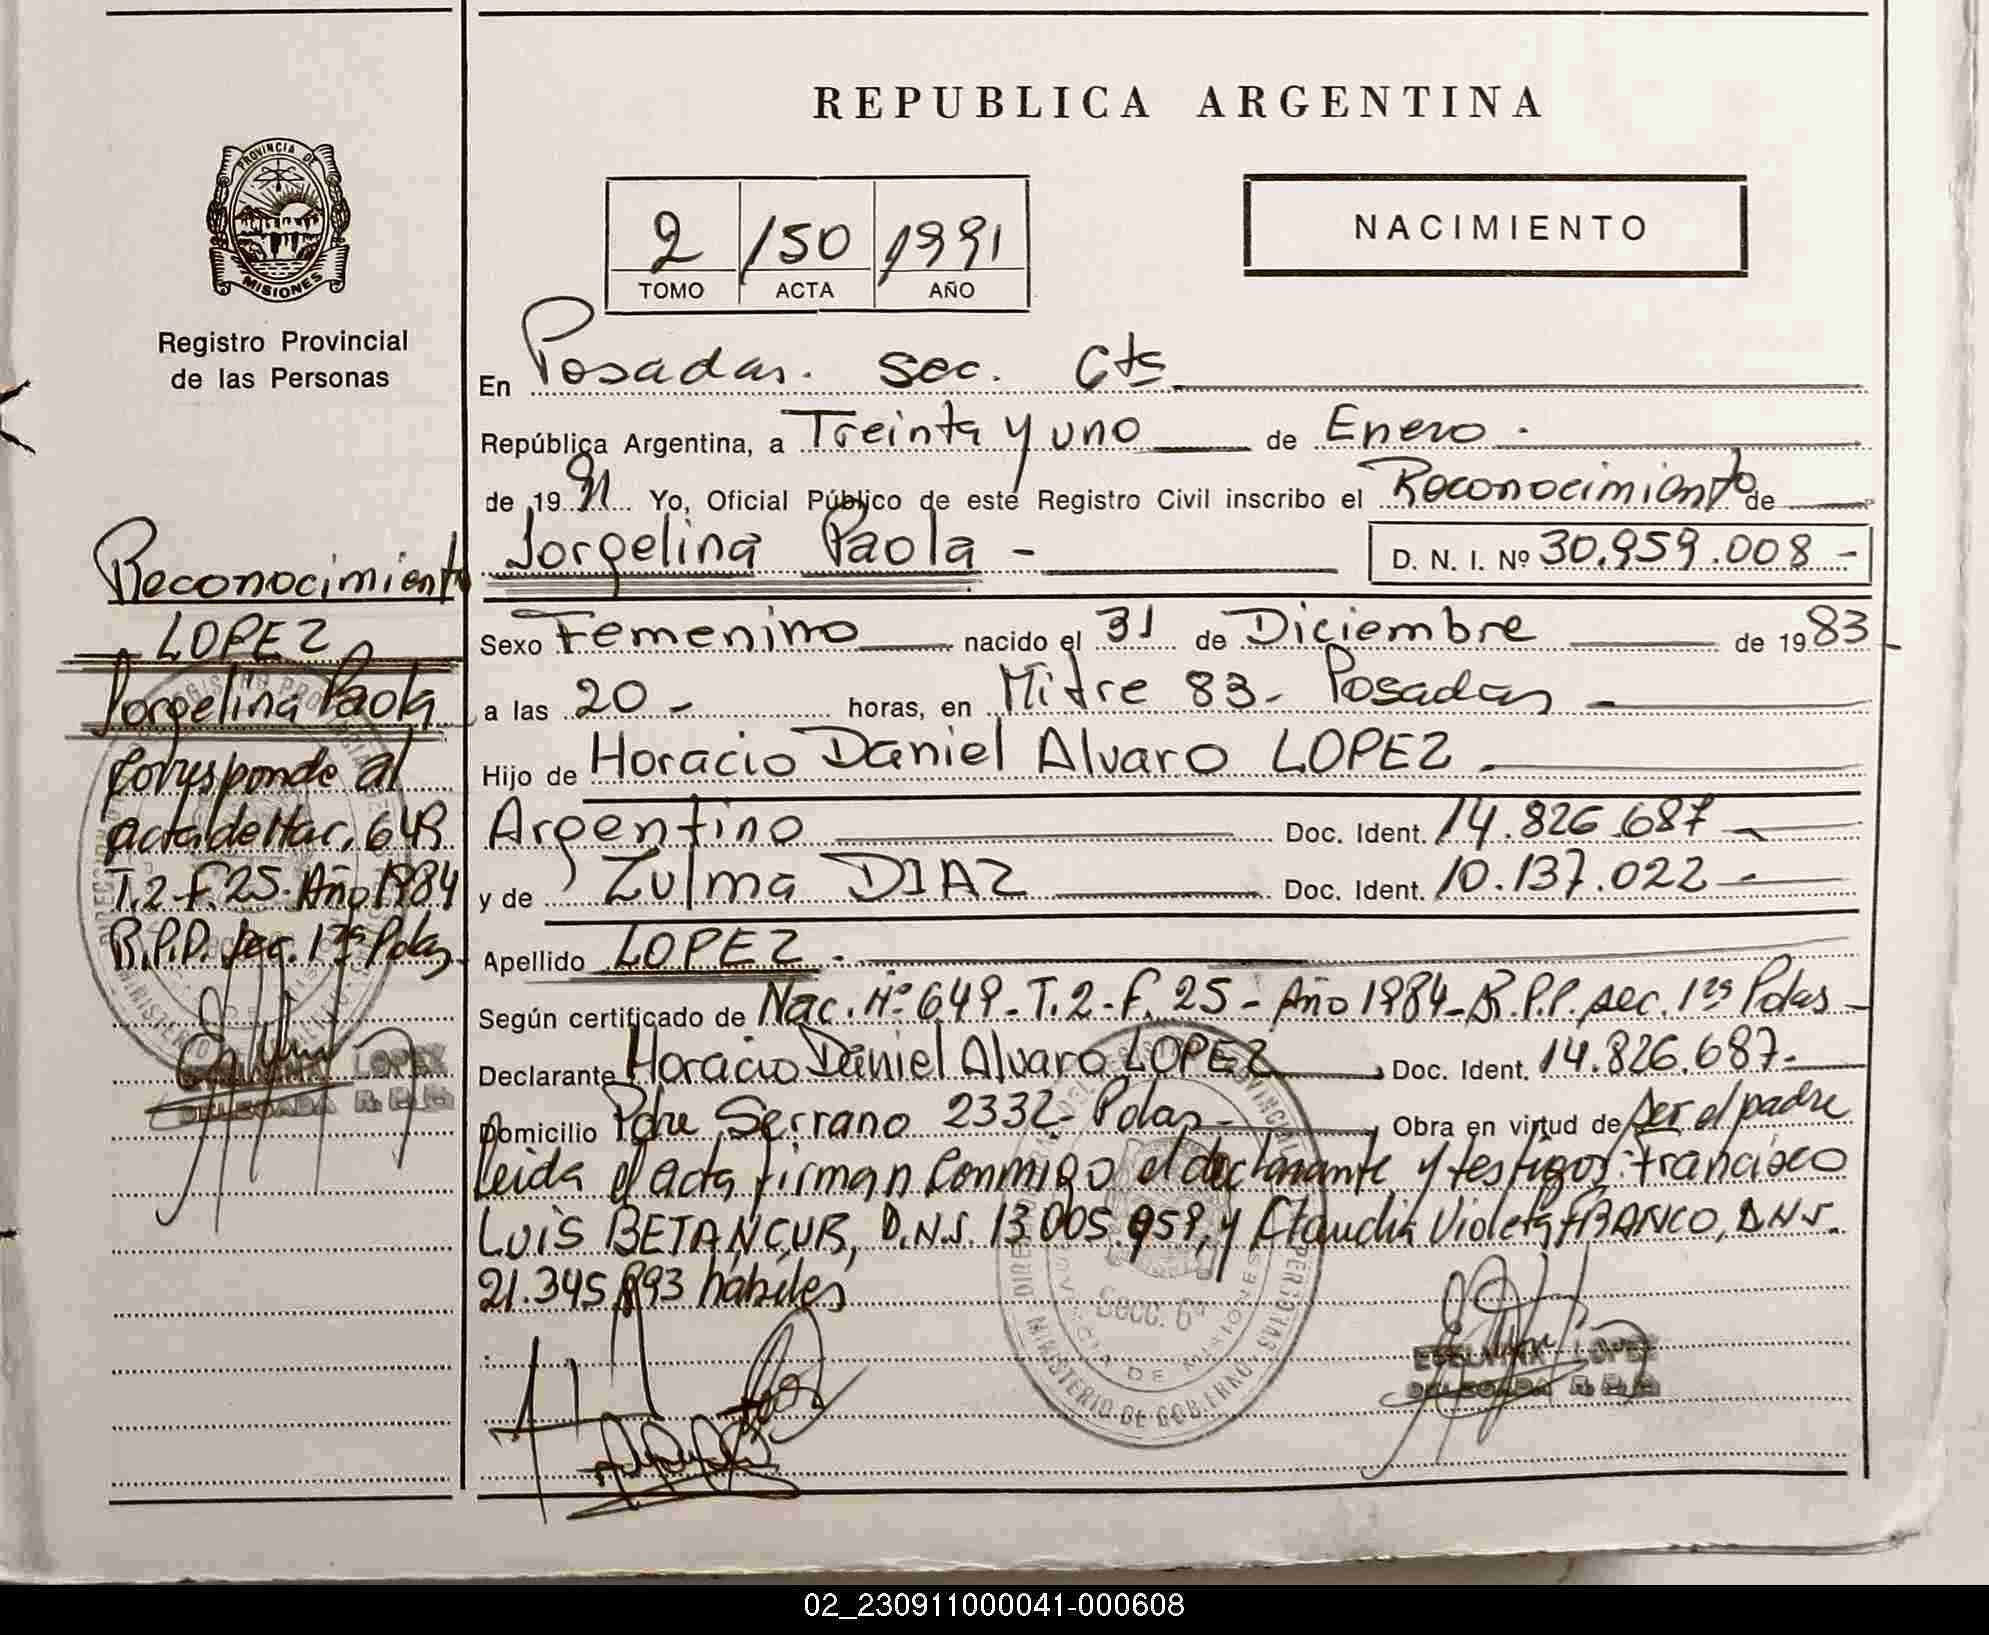 REPUBLICA ARGENTINA
PROVINCIA DE
MISIONES
Registro Provincial
de las Personas
2 150 1991
TOMO ACTA AÑO
NACIMIENTO
En Posadas. Sec. Cts
República Argentina, a Treinta y uno de Enero.
de 1991 Yo, Oficial Público de este Registro Civil inscribo el Reconocimiento de
Jorgelina Paola - D. N. I. Nº 30.959.008 -
Sexo Femenino nacido el 31 de Diciembre de 1983
a las 20 - horas, en Mitre 83 - Posadas
Hijo de Horacio Daniel Alvaro LOPEZ
Argentino Doc. Ident. 14.826.687
y de Zulma DIAZ Doc. Ident. 10.137.022
Apellido LOPEZ.
Según certificado de Nac. Nº 649 - T. 2 - F. 25 - Año 1984 - R.P.P. sec. 1ra Pdas
Declarante Horacio Daniel Alvaro LOPEZ, Doc. Ident. 14.826.687-
Domicilio Pdre Serrano 2332 - Pdas -, Obra en virtud de ser el padre
leida el acta firman conmigo el declarante y testigos: Francisco
Luis BETANCUR, D.N.I. 13.005.959, y Claudia Violeta FRANCO, D.N.I.
21.345.893 hábiles
Secc. 6ª
MINISTERIO DE GOBIERNO
PROVINCIA DE MISIONES
LOPEZ
DELEGADA R.P.P.
Reconocimiento
LOPEZ
Jorgelina Paola
Corresponde al
acta de Nac. 649
T. 2 - F. 25 - Año 1984
R.P.P. sec. 1ra Pdas
LOPEZ
DELEGADA R.P.P.
02_230911000041-000608